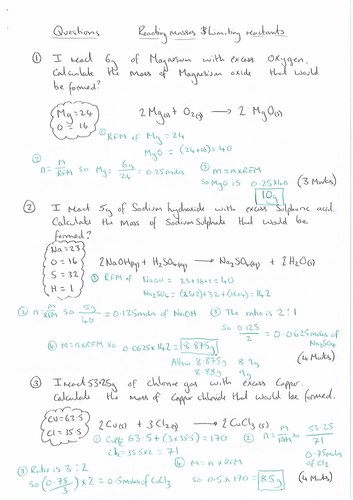 Questions Reacting masses & Limiting reactants
① I react 6g of Magnesium with excess Oxygen.
Calculate the Mass of Magnesium oxide that would
be formed?
Mg = 24
O = 16
2 Mg(s) + O2(g) → 2 MgO(s)
① RFM of Mg = 24
MgO = (24+16) = 40
② n = m/RFM so Mg = 6g/24 = 0.25 mols
③ m = n x RFM
So MgO is 0.25x40 (3 Marks)
10g
② I react 5g of Sodium hydroxide with excess Sulphuric acid.
Calculate the Mass of Sodium Sulphate that would be
formed?
Na = 23
O = 16
S = 32
H = 1
2NaOH(aq) + H2SO4(aq) → Na2SO4(aq) + 2H2O(l)
① RFM of NaOH = 23+16+1 = 40
Na2SO4 = (23x2)+32+(16x4) = 142
② n = m/RFM so 5g/40 = 0.125 mols of NaOH
③ The ratio is 2:1
So 0.125/2 = 0.0625 mols of
Na2SO4
④ M = n x RFM so 0.0625 x 142 = 8.875g
(4 Marks)
Allow 8.875g 8.9g
8.88g 9g
③ I react 53.25g of chlorine gas with excess Copper.
Calculate the mass of Copper chloride that would be formed.
Cu = 63.5
Cl = 35.5
2 Cu(s) + 3 Cl2(g) → 2 CuCl3(s)
① CuCl3 63.5 + (3x35.5) = 170
Cl2 = 35.5x2 = 71
② n = m/RFM so 53.25/71
0.75 mols
of Cl2
③ Ratio is 3:2
So (0.75/3) x 2 = 0.5 mols of CuCl3
④ M = n x RFM
So 0.5 x 170 = 85g (4 Marks)